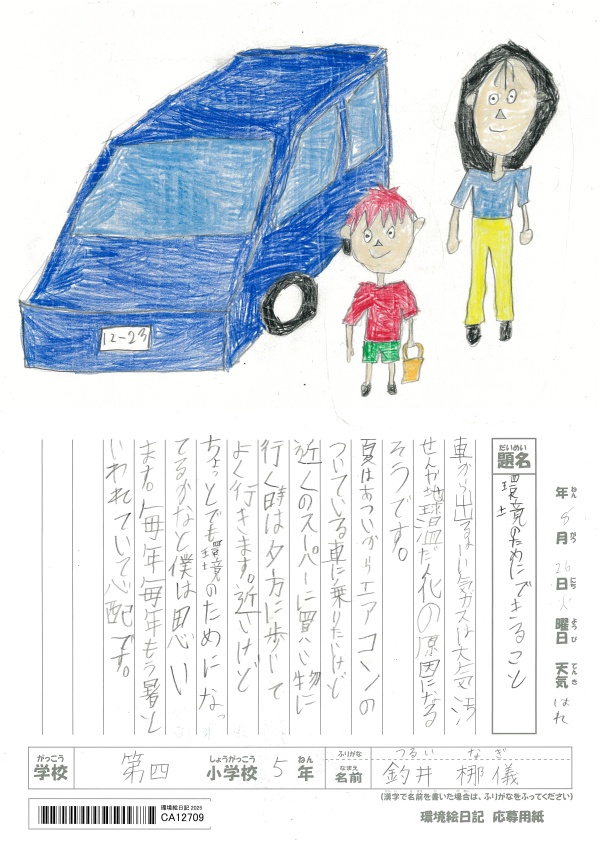 12-23
年 8 月 26 日 火 曜日 天気 はれ
ねん がつ にち ようび てんき
だいめい
題名
環境のためにできること
車から出るはい気ガスは大気汚
せんや地球温だん化の原因になる
そうです。
夏はあついからエアコンの
ついている車に乗りたいけど
近くのスーパーに買い物に
行く時は夕方に歩いて
よく行きます。近いけど
ちょっとでも環境のためになっ
てるかなと僕は思い
ます。毎年毎年もう暑と
いわれていて心配です。
がっこう
学校
第四
しょうがっこう
小学校
5
ねん
年
ふりがな
つるい なぎ
なまえ
名前
釣井 梛儀
(漢字で名前を書いた場合は、ふりがなをふってください)
環境絵日記 2025
CA12709
環境絵日記 応募用紙